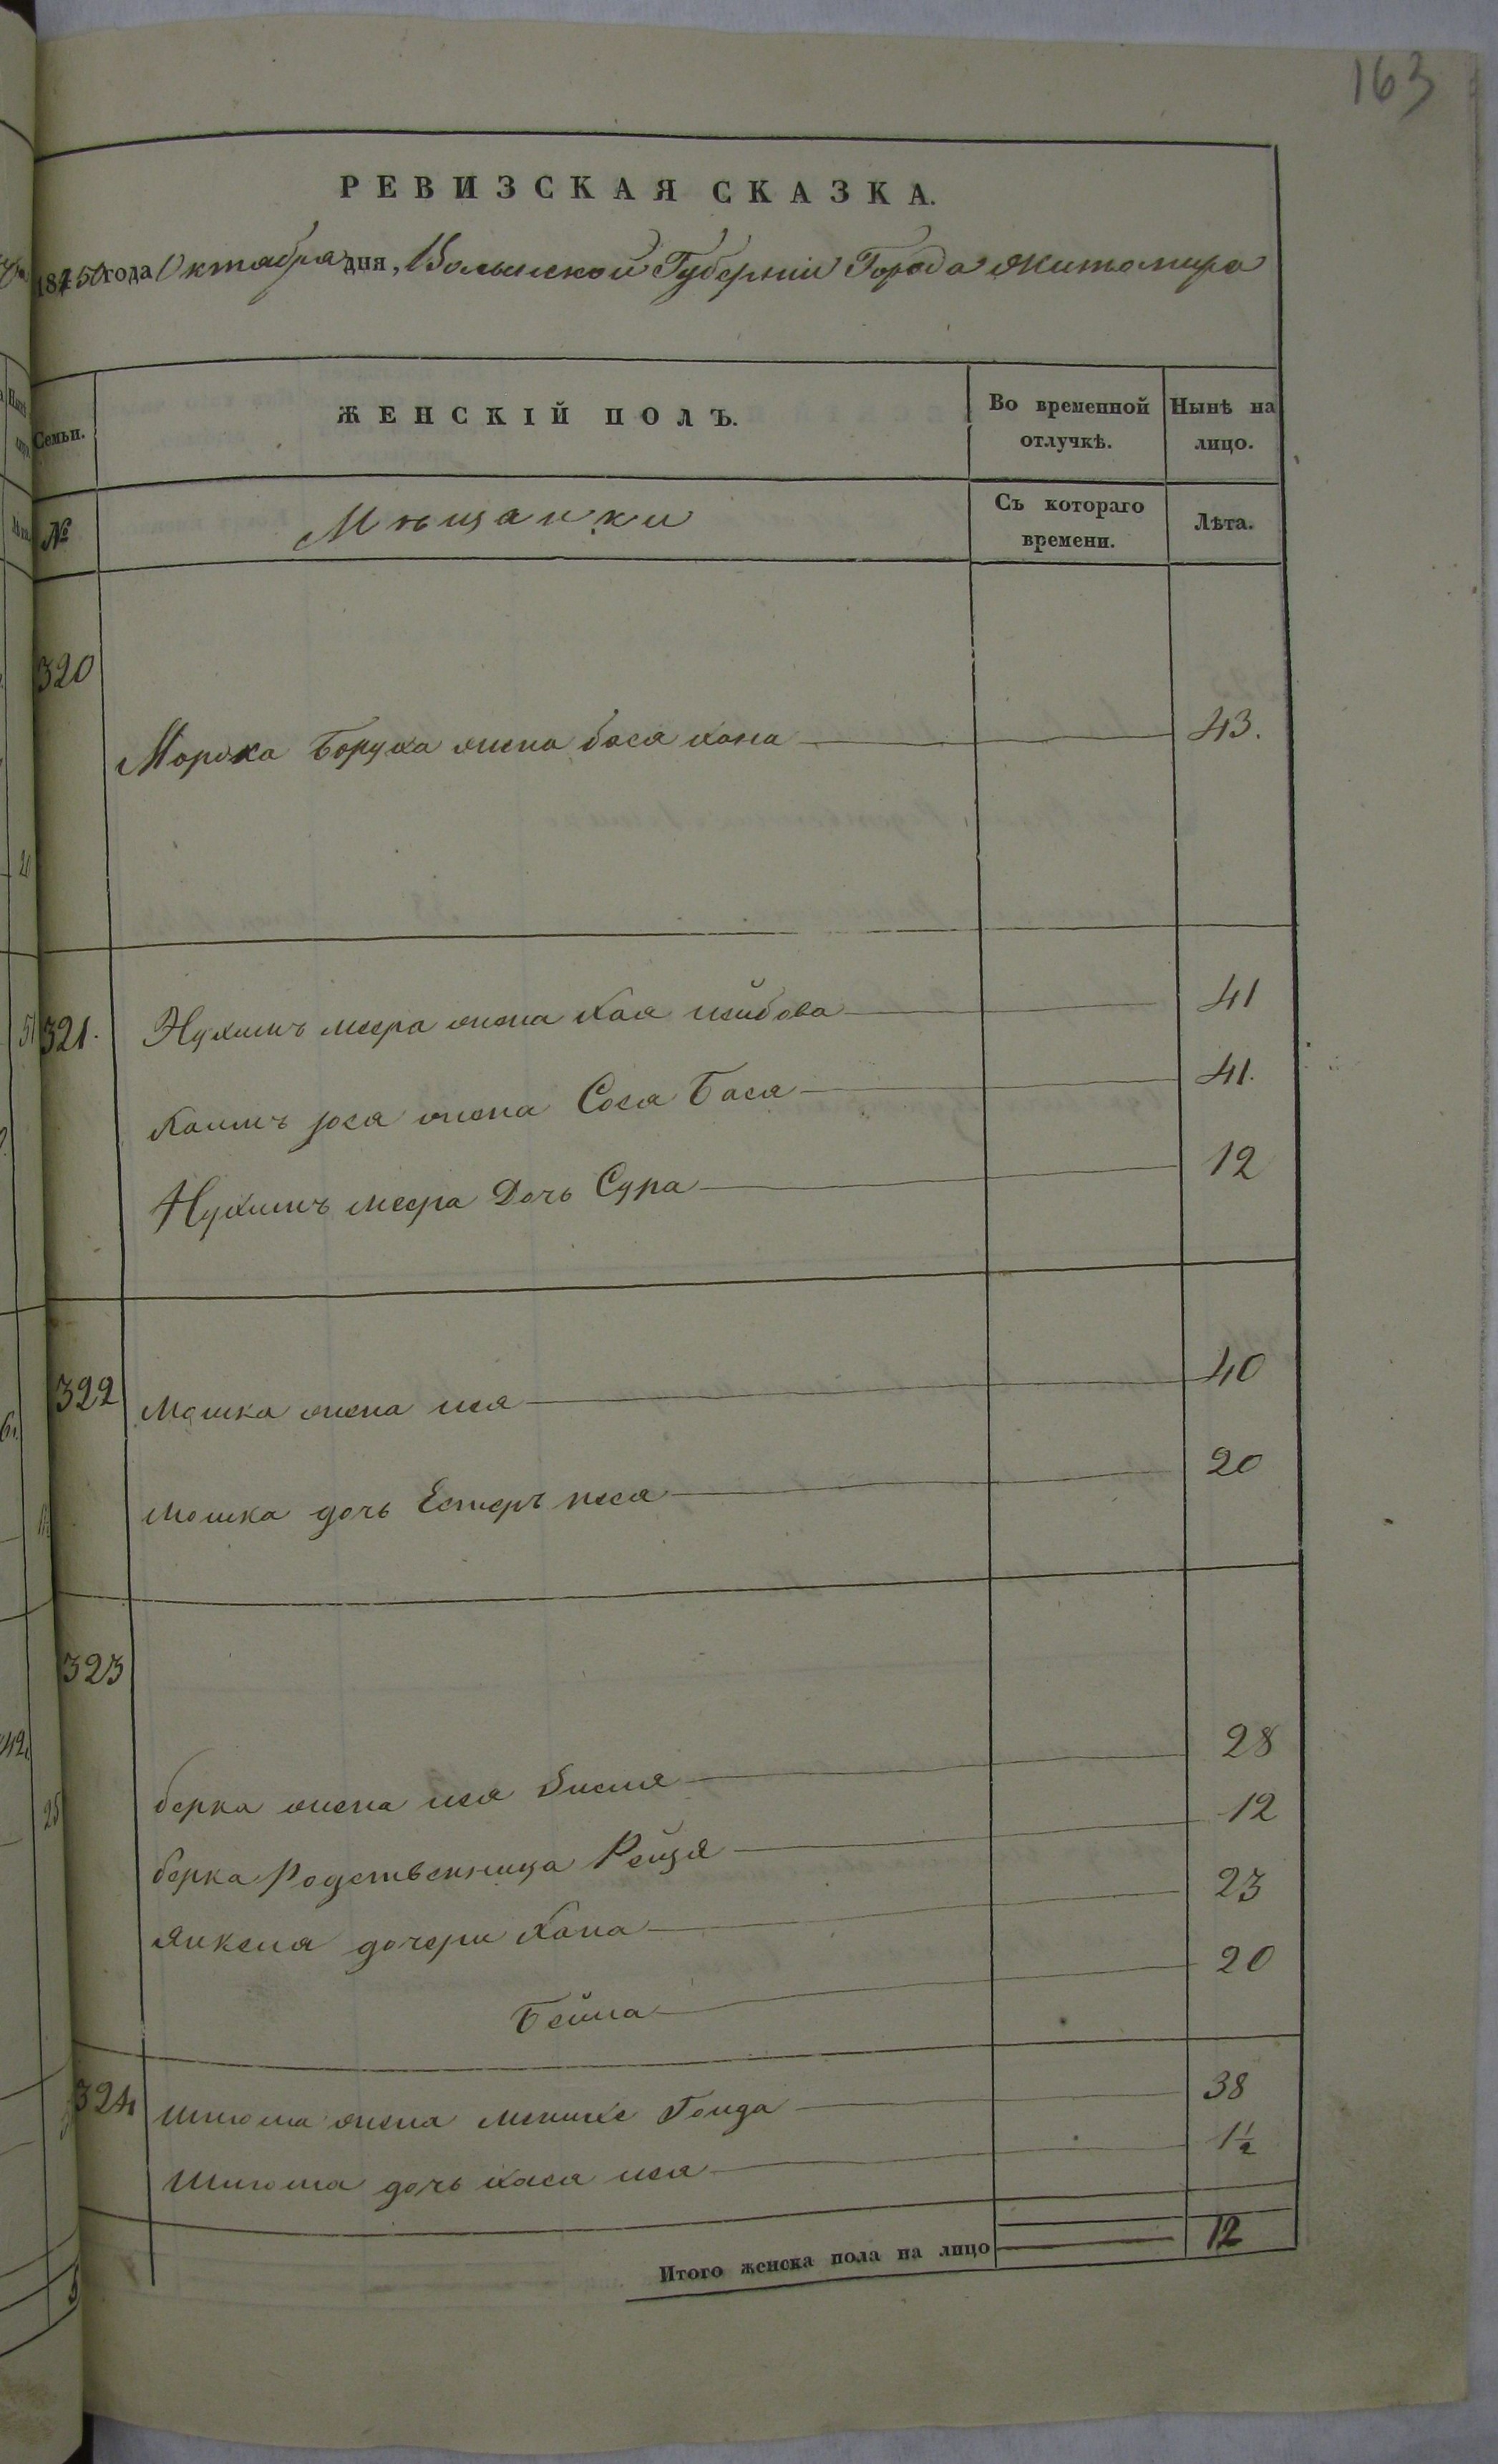 163
РЕВИЗСКАЯ СКАЗКА.
1850 года Октабра дня, Волынской Губерніи Города Житомира
Семьи.
ЖЕНСКІЙ ПОЛЪ.
Во временной отлучкѣ.
Нынѣ на лицо.
№
Мѣщанки
Съ котораго времени.
Лѣта.
320
Боруха жена бася хана 43.
321. Нухимъ меера жена хая лейбова 41
хаимъ жена Соса Бася 41.
Нухимъ меера Дочь Сура 12
322 Мошка жена 40
Мошка дочь Естеръ песя 20
323
берка жена 28
берка Родственница Рейзя 12
Янкеля дочери Хана 23
Бейла 20
324 жена Голда 38
дочь хася 1½
Итого женска пола на лицо 12